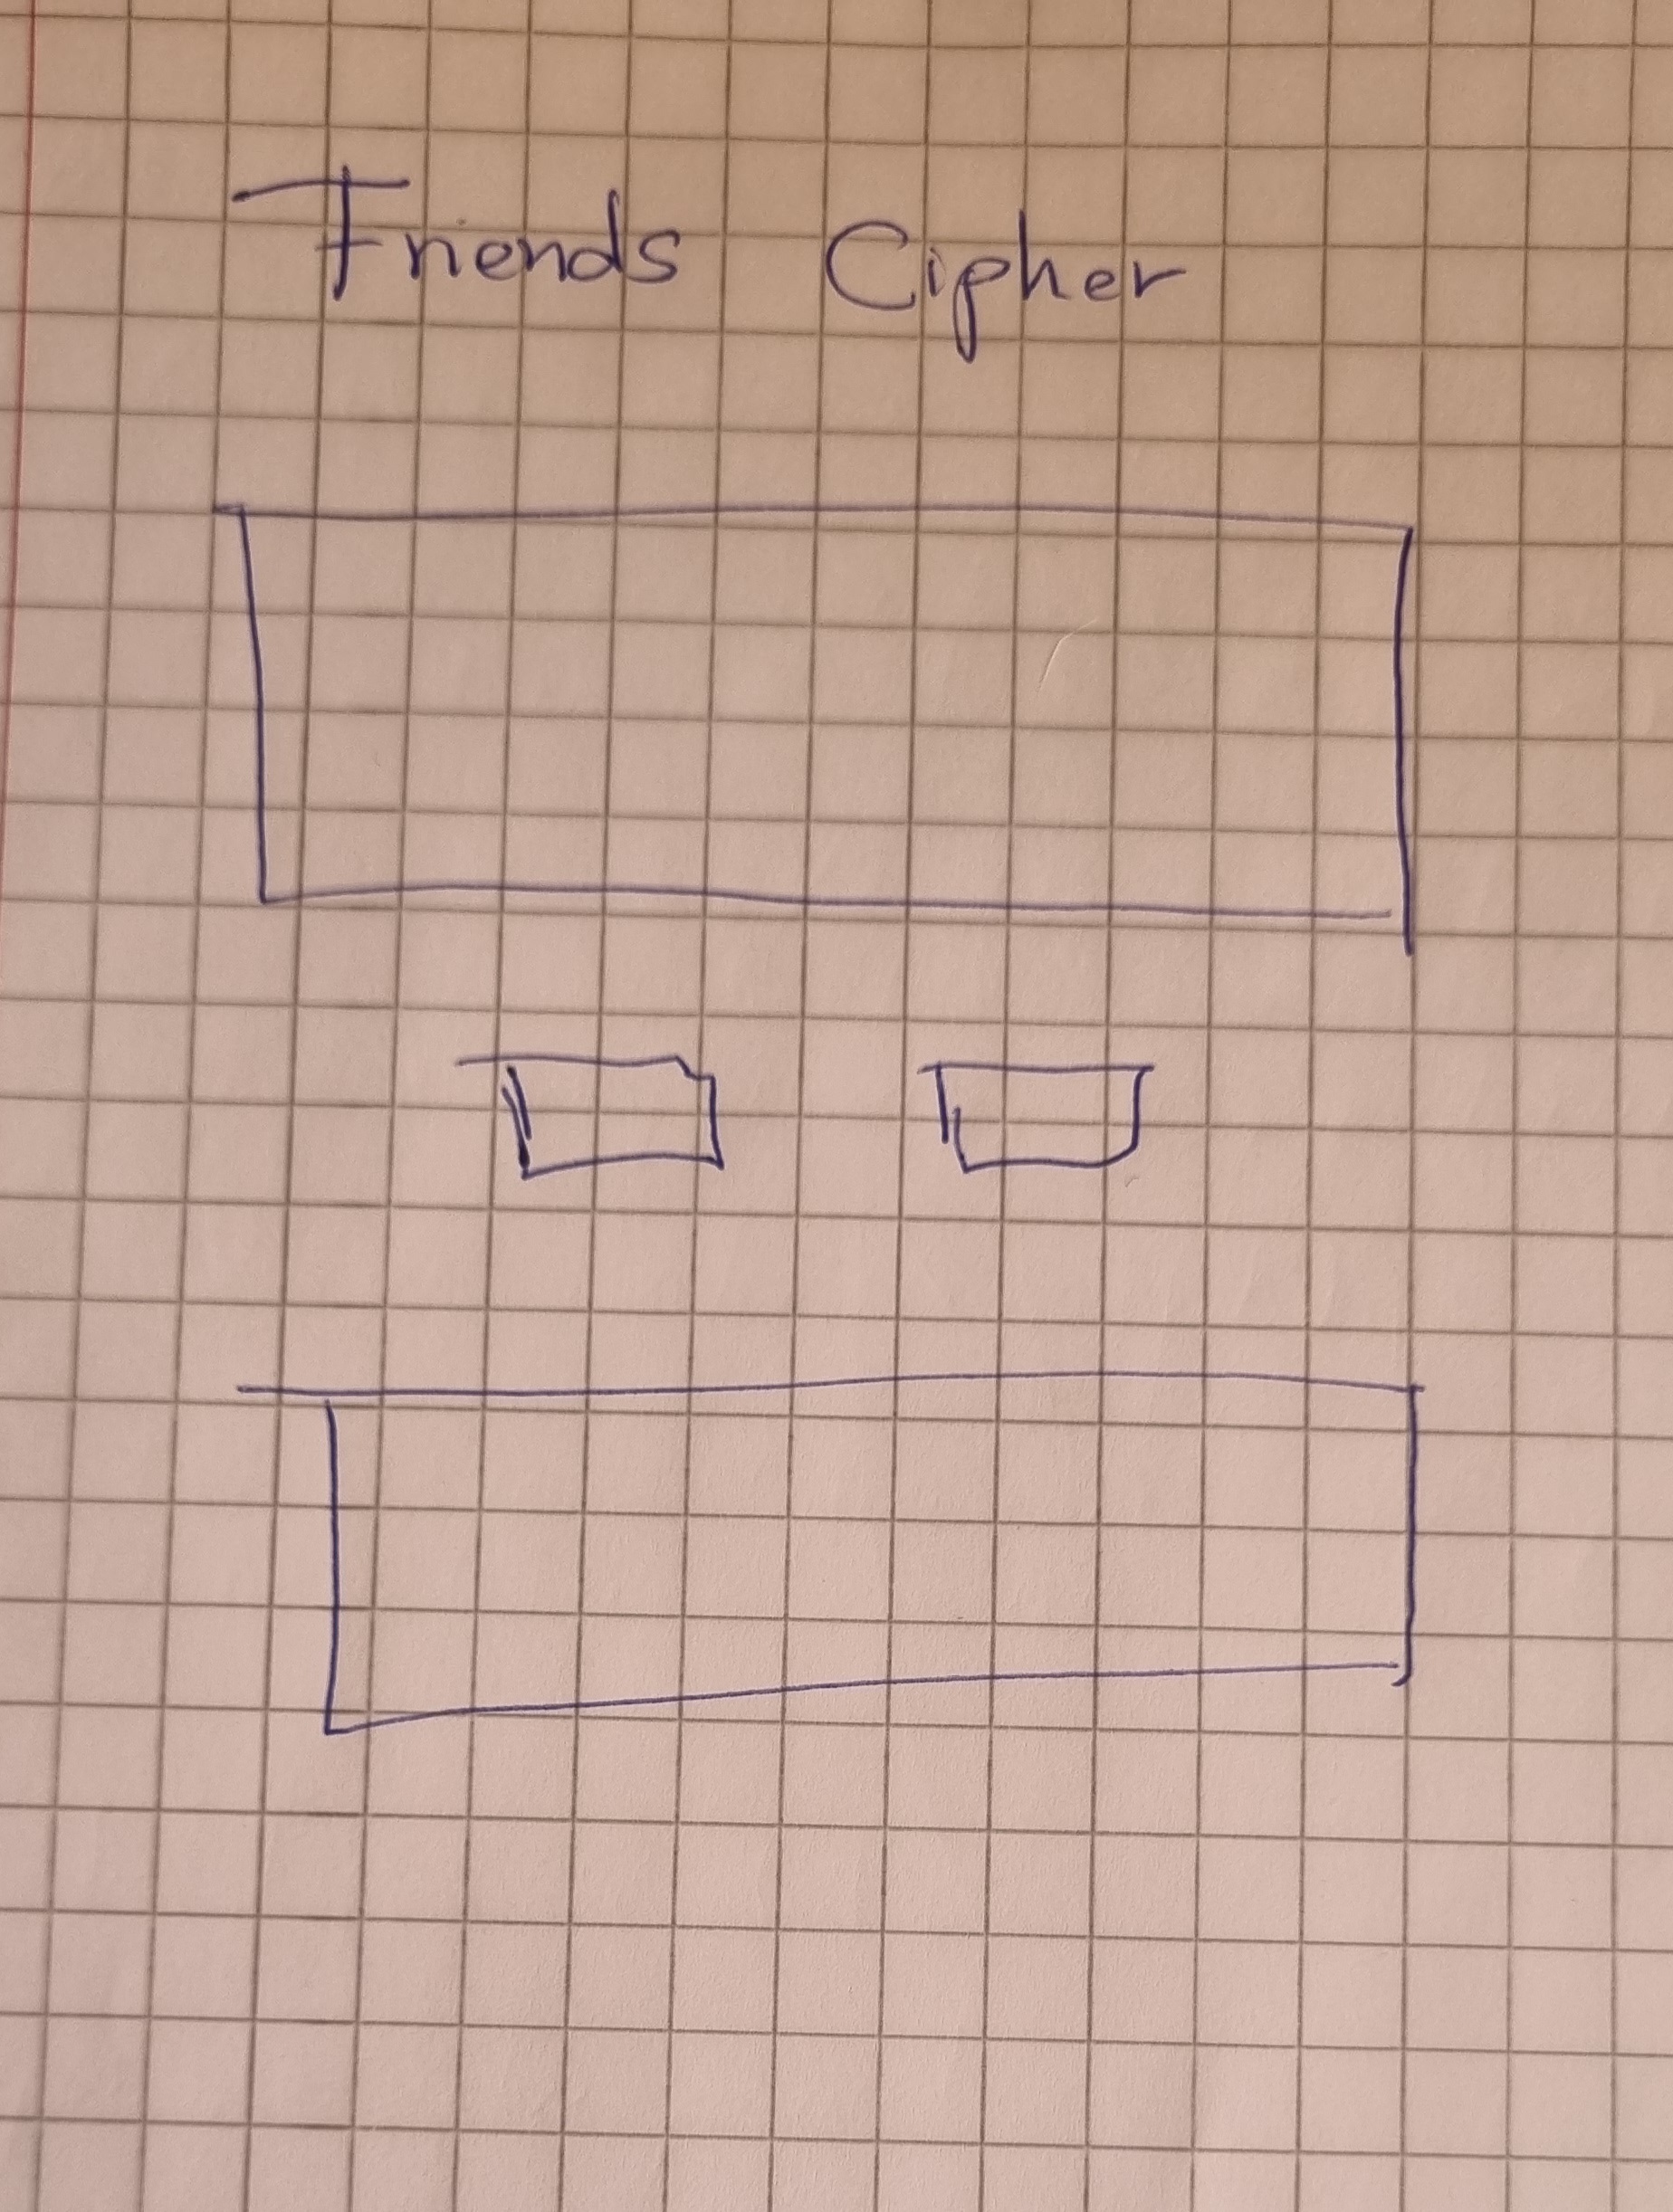 Friends Cipher